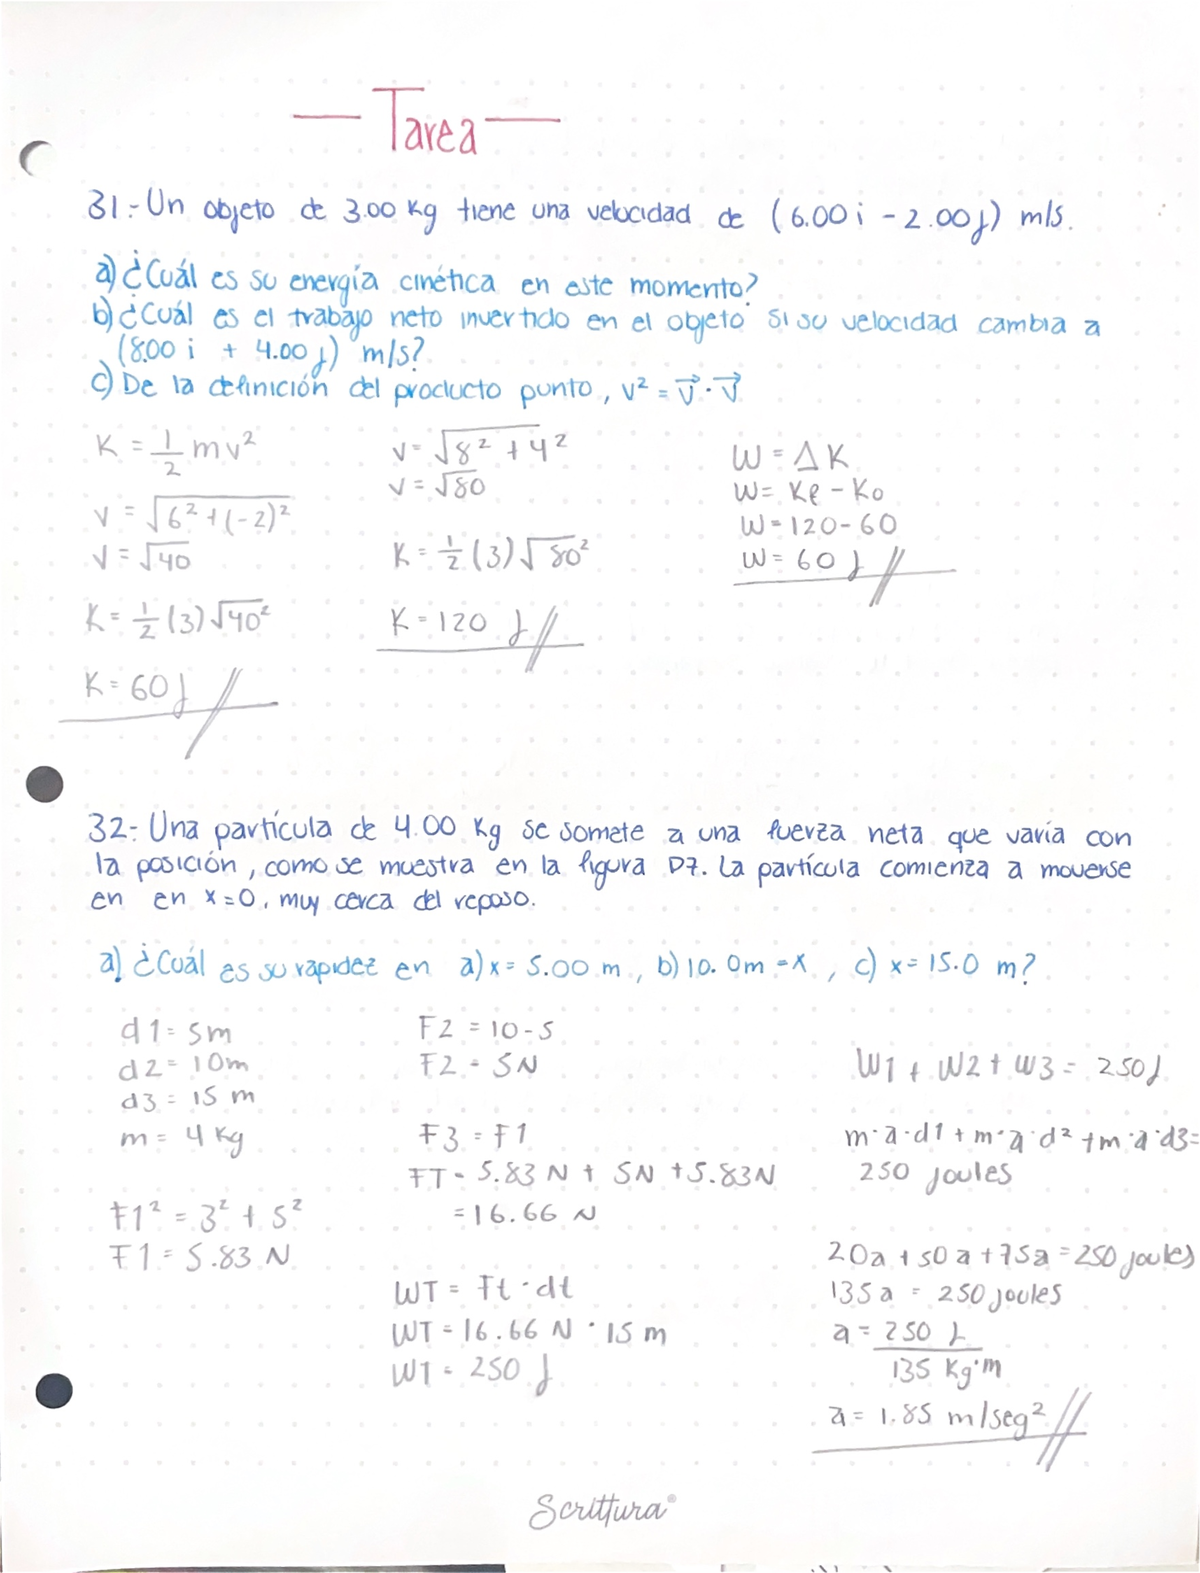 Tarea
31.- Un objeto de 3.00 Kg tiene una velocidad de (6.00 i - 2.00 j) m/s.
a) ¿Cuál es su energía cinética en este momento?
b) ¿Cuál es el trabajo neto invertido en el objeto si su velocidad cambia a
(8.00 i + 4.00 j) m/s?
c) De la definición del producto punto, v² = v⃗ · v⃗
K = 1/2 mv²
v = √6² + (-2)²
v = √40
K = 1/2 (3) √40²
K = 60 J
v = √8² + 4²
v = √80
K = 1/2 (3) √80²
K = 120 J
W = ΔK
W = Kf - Ko
W = 120 - 60
W = 60 J
32.- Una partícula de 4.00 Kg se somete a una fuerza neta que varía con
la posición, como se muestra en la figura P7. La partícula comienza a moverse
en en x = 0, muy cerca del reposo.
a) ¿Cuál es su rapidez en a) x = 5.00 m, b) 10.0m = x, c) x = 15.0 m?
d1 = 5m
d2 = 10m
d3 = 15 m
m = 4 Kg
F1² = 3² + 5²
F1 = 5.83 N
F2 = 10 - 5
F2 = 5N
F3 = F1
FT = 5.83 N + 5N + 5.83N
= 16.66 N
WT = Ft · dt
WT = 16.66 N · 15 m
W1 = 250 J
W1 + W2 + W3 = 250 J
m·a·d1 + m·a·d2 + m·a·d3 =
250 joules
20a + 50a + 75a = 250 joules
135a = 250 joules
a = 250 J
135 Kg·m
a = 1.85 m/seg²
Scrittura®